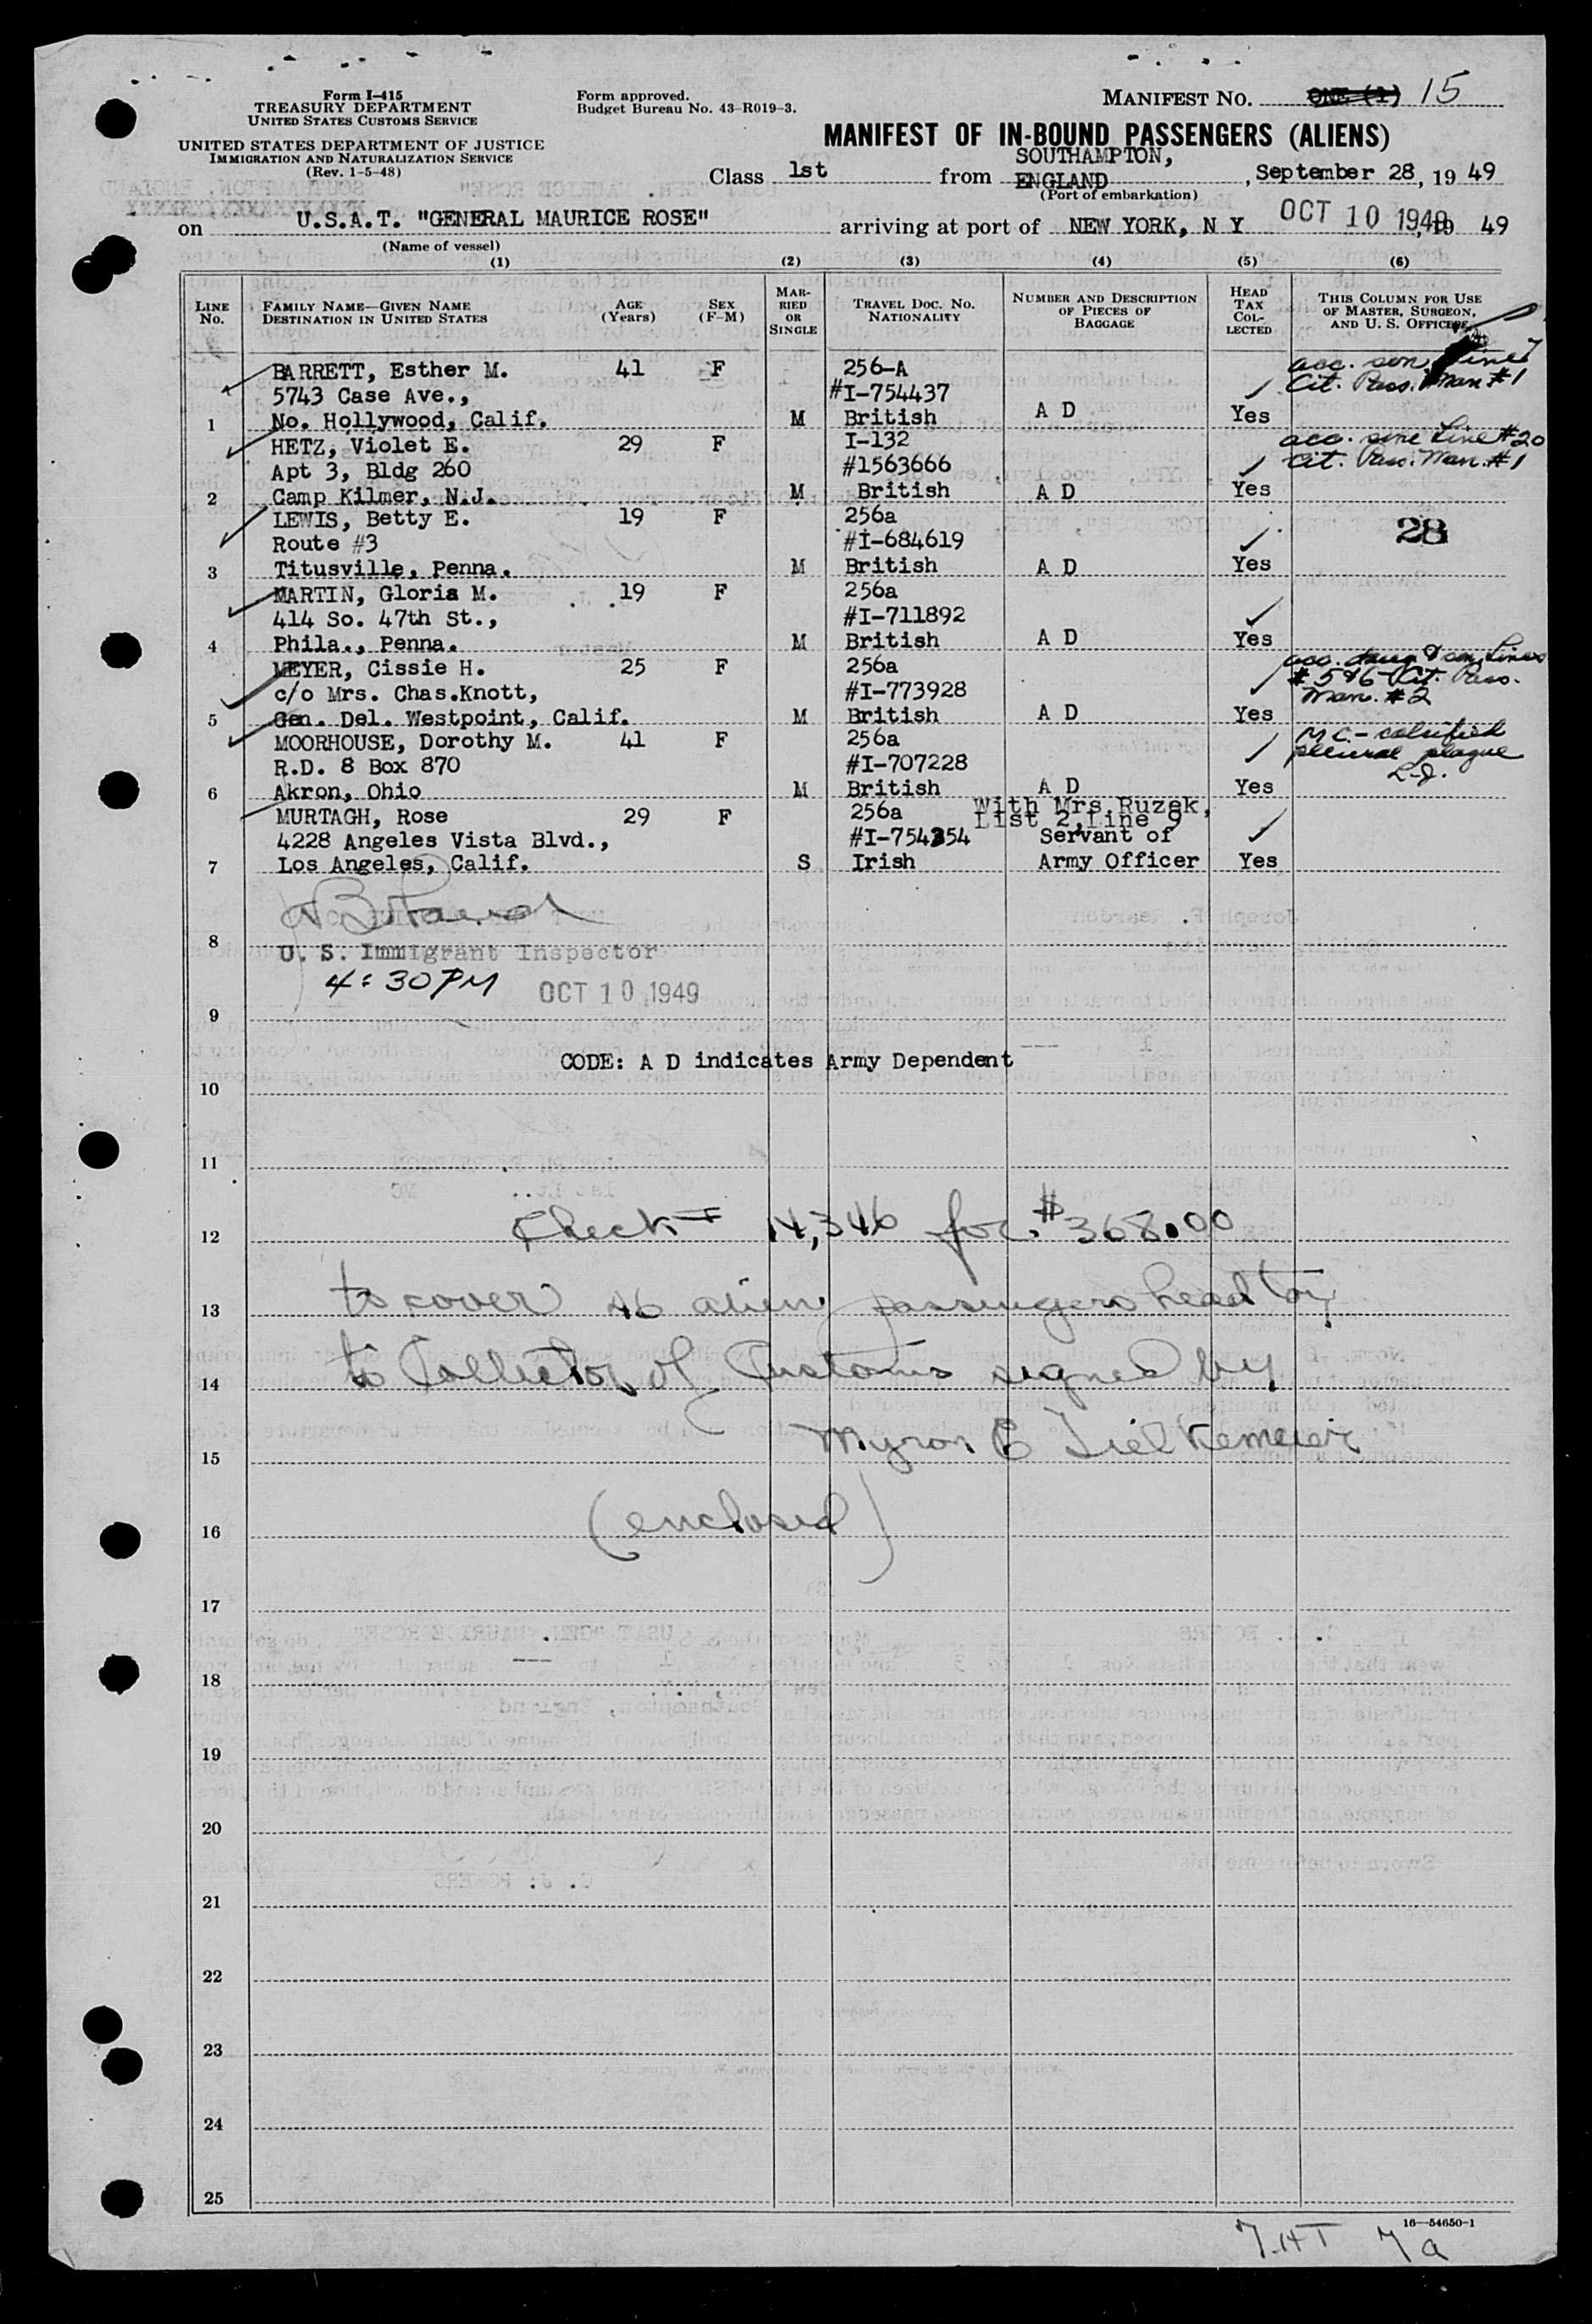 Form I-415
TREASURY DEPARTMENT
UNITED STATES CUSTOMS SERVICE
UNITED STATES DEPARTMENT OF JUSTICE
IMMIGRATION AND NATURALIZATION SERVICE
(Rev. 1-5-48)
Form approved.
Budget Bureau No. 43-R019-3.
MANIFEST No. ONE (1) 15
MANIFEST OF IN-BOUND PASSENGERS (ALIENS)
Class 1st from SOUTHAMPTON, ENGLAND, September 28, 19 49
(Port of embarkation)
on U.S.A.T. "GENERAL MAURICE ROSE" arriving at port of NEW YORK, N Y OCT 10 1949, 19 49
(Name of vessel)
(1) (2) (3) (4) (5) (6)
LINE No.
FAMILY NAME—GIVEN NAME
DESTINATION IN UNITED STATES
AGE (Years)
SEX (F-M)
MARRIED OR SINGLE
TRAVEL DOC. NO.
NATIONALITY
NUMBER AND DESCRIPTION OF PIECES OF BAGGAGE
HEAD TAX COLLECTED
THIS COLUMN FOR USE OF MASTER, SURGEON, AND U. S. OFFICERS
BARRETT, Esther M. 41 F 256-A acc. son, Line 7
5743 Case Ave., #I-754437 Cit. Pass. Man #1
1 No. Hollywood, Calif. M British A D Yes
HETZ, Violet E. 29 F I-132 acc. sine Line #20
Apt 3, Bldg 260 #1563666 Cit. Pass. Man. #1
2 Camp Kilmer, N.J. M British A D Yes
LEWIS, Betty E. 19 F 256a 28
Route #3 #I-684619
3 Titusville, Penna. M British A D Yes
MARTIN, Gloria M. 19 F 256a
414 So. 47th St., #I-711892
4 Phila., Penna. M British A D Yes
MEYER, Cissie H. 25 F 256a acc. daug & son, Lines
c/o Mrs. Chas.Knott, #I-773928 #5 &6 Cit. Pass.
Man. #2
5 Gen. Del. Westpoint, Calif. M British A D Yes
MOORHOUSE, Dorothy M. 41 F 256a M C. - calsified
R.D. 8 Box 870 #I-707228 pleural plague
6 Akron, Ohio M British A D Yes
MURTAGH, Rose 29 F 256a With Mrs Ruzek,
List 2, Line 9
4228 Angeles Vista Blvd., #I-754354 Servant of
7 Los Angeles, Calif. S Irish Army Officer Yes
8 U. S. Immigrant Inspector
4:30 PM OCT 10 1949
9
CODE: A D indicates Army Dependent
10
11
12 Check # 14,346 for $368.00
13 to cover 46 alien passengers head tax
14 to Collector of Customs signed by
15 Myron E
16 (enclosed)
17
18
19
20
21
22
23
24
25
16—54650-1